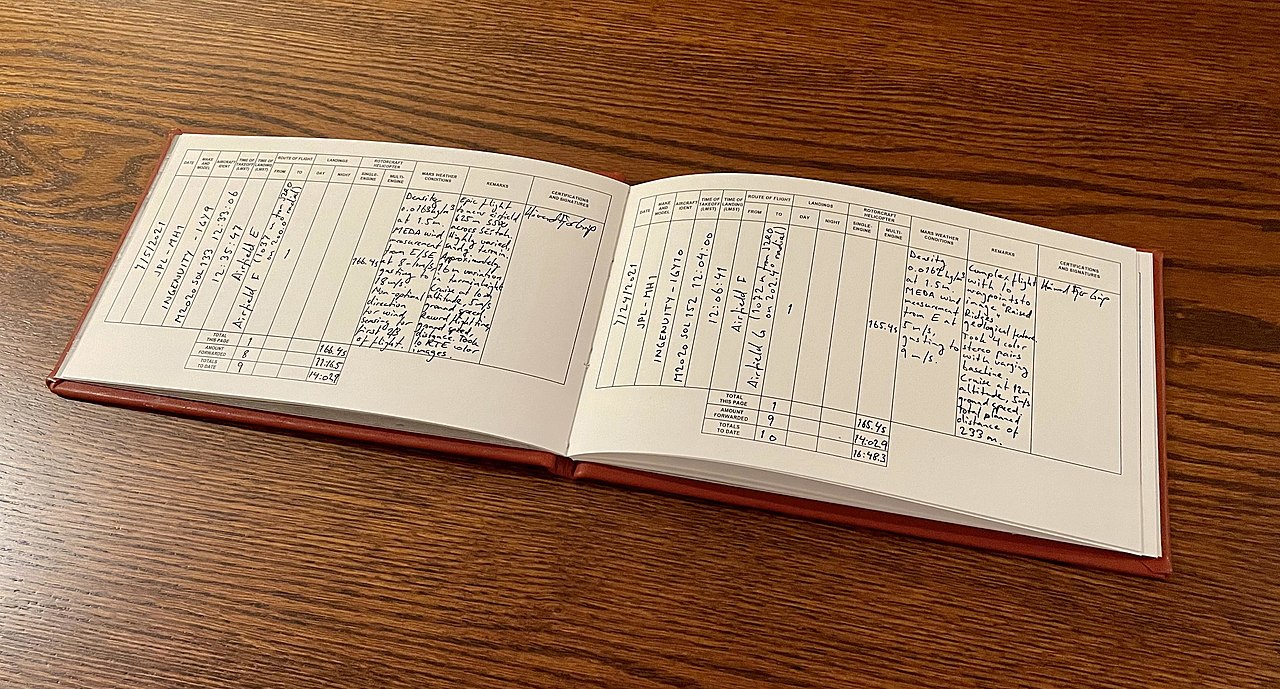 DATE
MAKE AND MODEL
AIRCRAFT IDENT
TIME OF TAKEOFF (LMST)
TIME OF LANDING (LMST)
ROUTE OF FLIGHT
FROM
TO
LANDINGS
DAY
NIGHT
ROTORCRAFT HELICOPTER
SINGLE-ENGINE
MULTI-ENGINE
MARS WEATHER CONDITIONS
REMARKS
CERTIFICATIONS AND SIGNATURES
7/5/2021
JPL-MH1
INGENUITY
M2020 SOL 133 12:33:06
12:35:47
Airfield E
Airfield F
radial)
1
166.4s
Density
at 1.5m
MEDA wind
measurement
from E/SE
at 5 m/s,
gusting to
18 m/s
direction
for wind,
landing
first 92s
of flight.
Epic flight
to new airfield
625m SSW
across Séítah.
Highly varied,
terrain.
Approximately
altitude, 5m/s
ground speed.
Record flight time,
ground speed,
distance. Took
10 RTE color
images.
TOTAL THIS PAGE
1
166.4s
AMOUNT FORWARDED
8
11:16.5
TOTALS TO DATE
9
14:02.9
DATE
MAKE AND MODEL
AIRCRAFT IDENT
TIME OF TAKEOFF (LMST)
TIME OF LANDING (LMST)
ROUTE OF FLIGHT
FROM
TO
LANDINGS
DAY
NIGHT
ROTORCRAFT HELICOPTER
SINGLE-ENGINE
MULTI-ENGINE
MARS WEATHER CONDITIONS
REMARKS
CERTIFICATIONS AND SIGNATURES
7/24/2021
JPL-MH1
INGENUITY - IGY10
M2020 SOL 152 12:04:00
12:06:41
Airfield F
Airfield G (1072 m from JZRO
on 202.4° radial)
1
165.4s
Density
0.0162 kg/m3
at 1.5m
MEDA wind
measurement
from E at
5 m/s,
gusting to
9 m/s.
Complex flight
with 10
waypoints to
image "Raised
Ridges"
geological feature.
Took 4 color
stereo pairs
with varying
baseline.
Cruise at 12m
altitude, 5m/s
ground speed,
total planned
distance of
233 m.
TOTAL THIS PAGE
1
165.4s
AMOUNT FORWARDED
9
14:02.9
TOTALS TO DATE
10
16:48.3